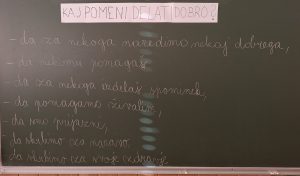 KAJ POMENI DELATI DOBRO?
- da za nekoga naredimo nekaj dobrega,
- da nekomu pomagaš
- da za nekoga izdelaš spominek,
- da pomagamo živalim,
- da smo prijazni,
- da skrbimo za naravo,
- da skrbimo za svoje zdravje